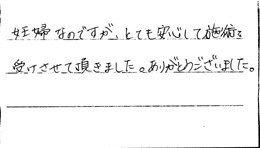 妊婦なのですが、とても安心して施術を
受けさせて頂きました。ありがとうございました。